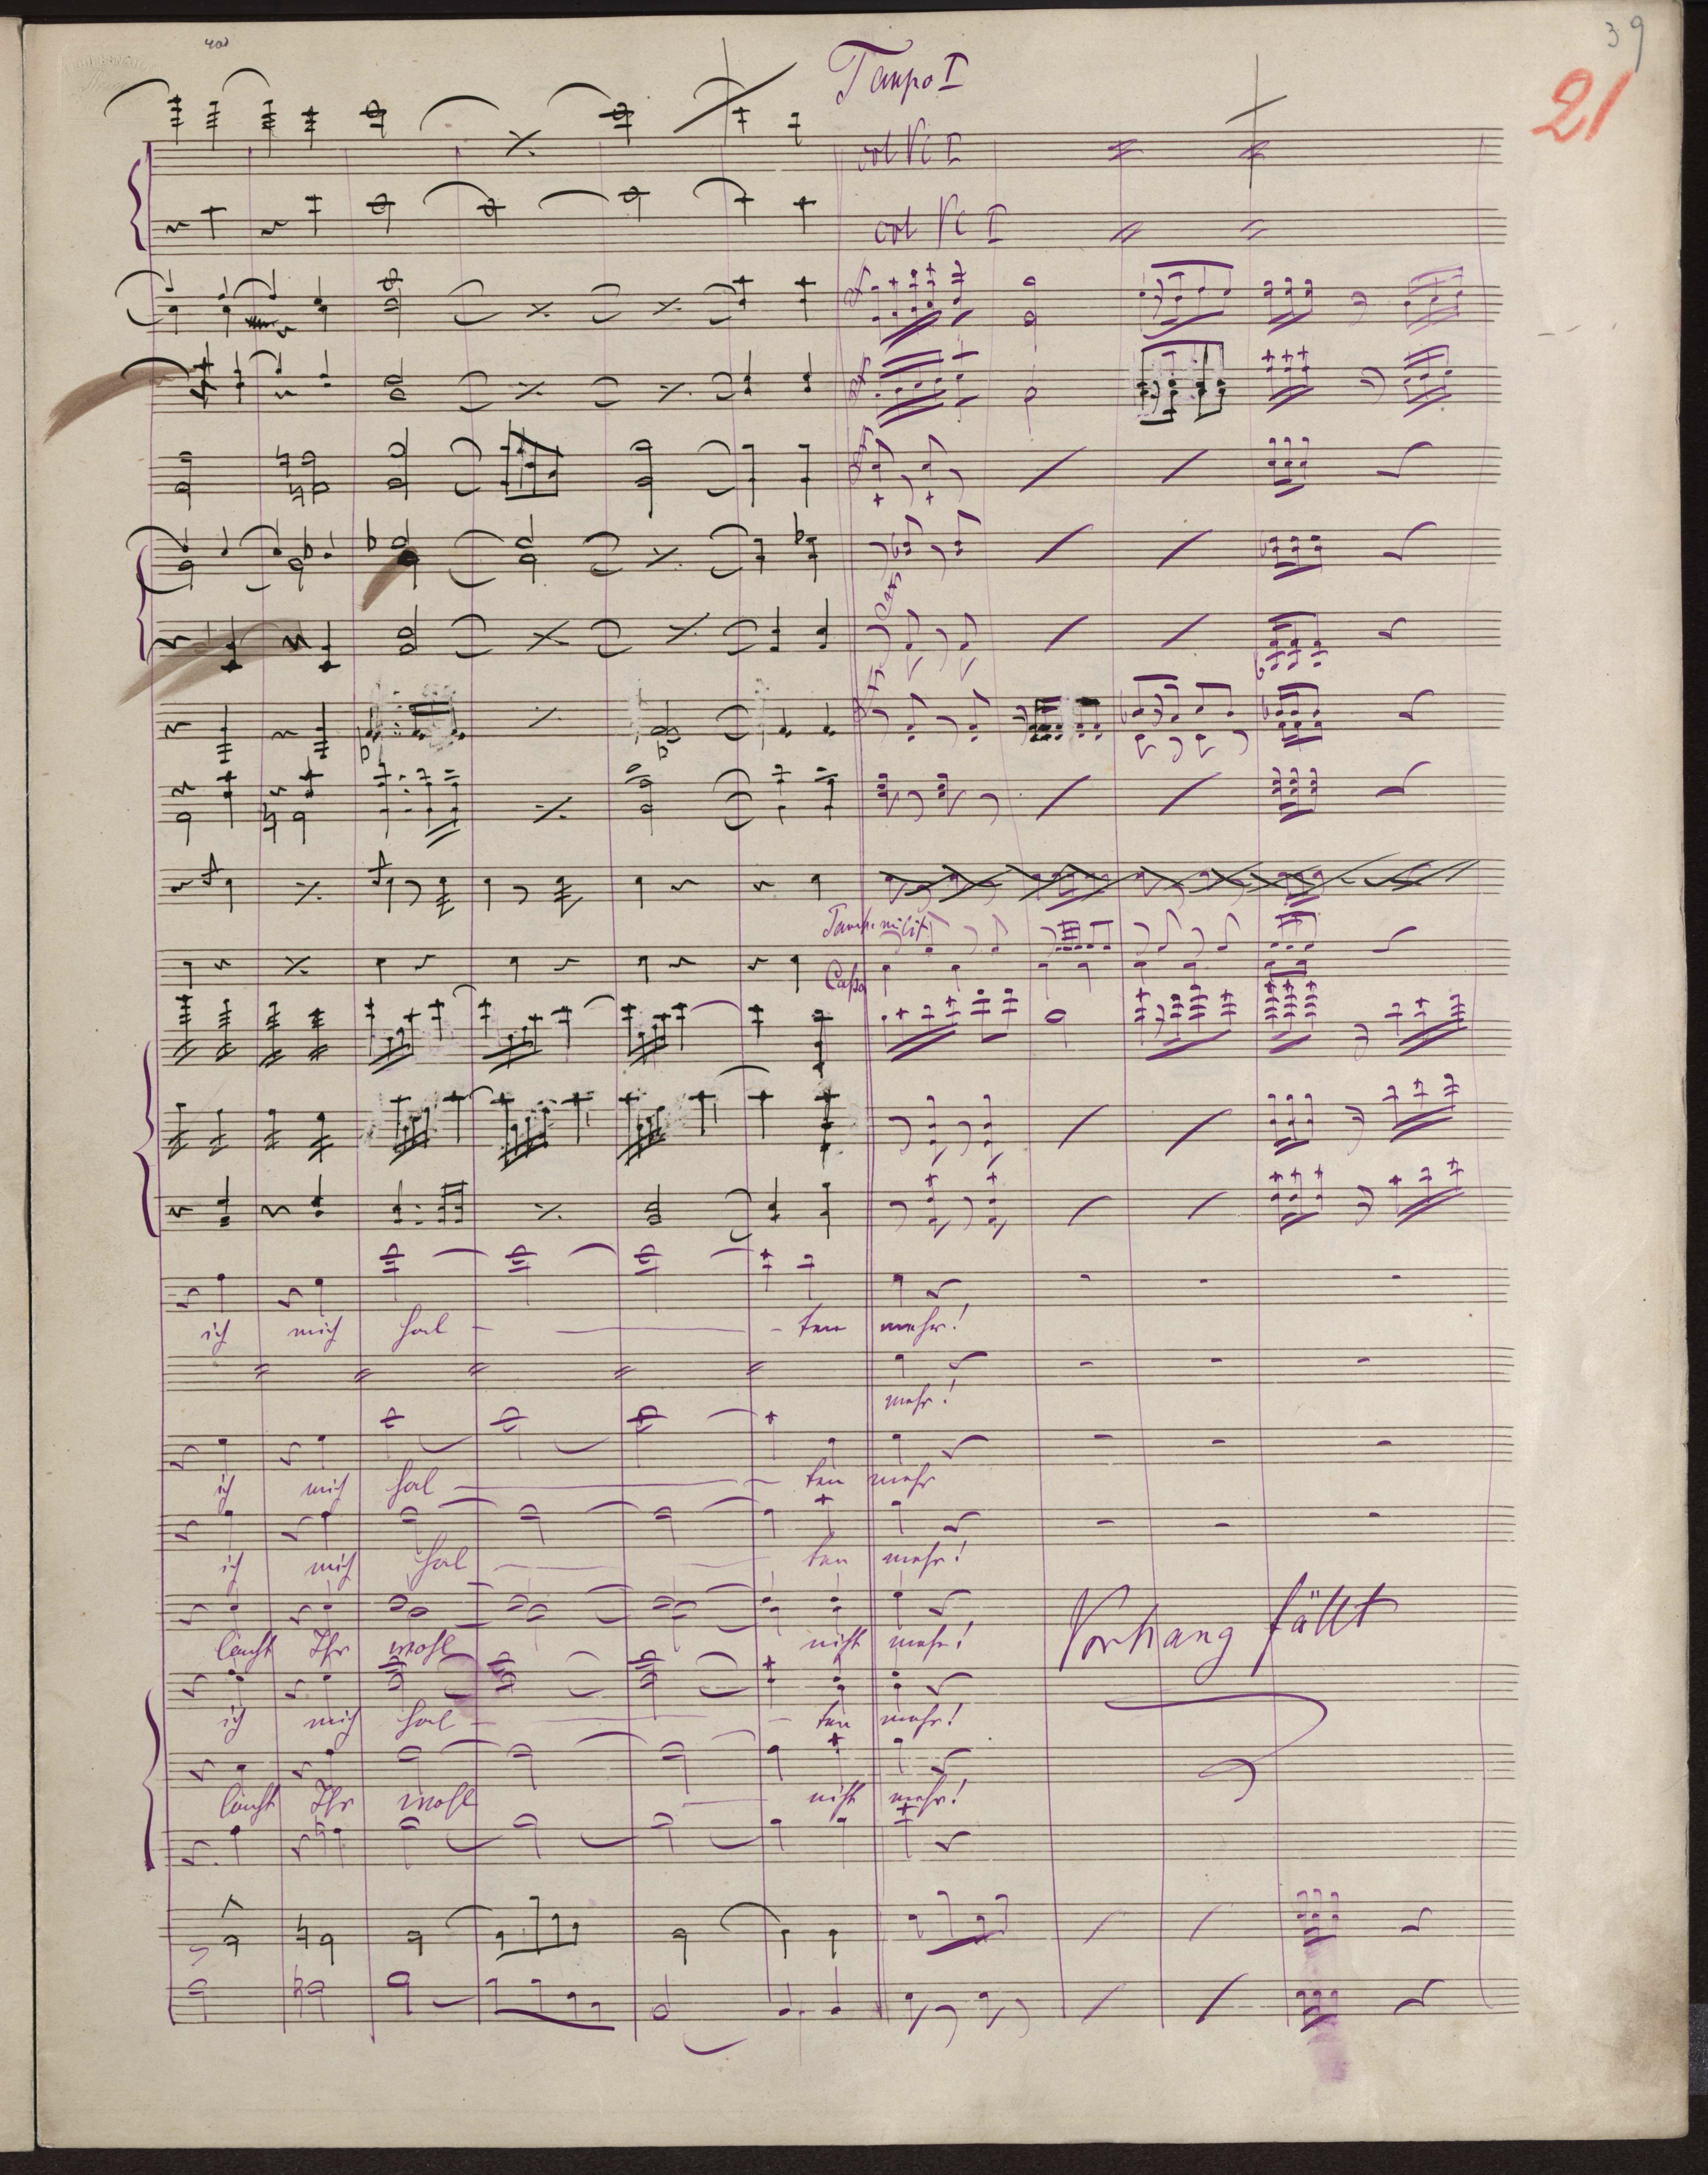 39
21
Tempo I
col Vl I
col Vl I
Tamb. milit.
Cassa
ich mich hal - - ten mehr!
mehr!
ich mich hal - ten mehr
ich mich hal - ten mehr!
laucht Ihr wohl nicht mehr!
Vorhang fällt
ich mich hal - - ten mehr!
laucht Ihr wohl nicht mehr!